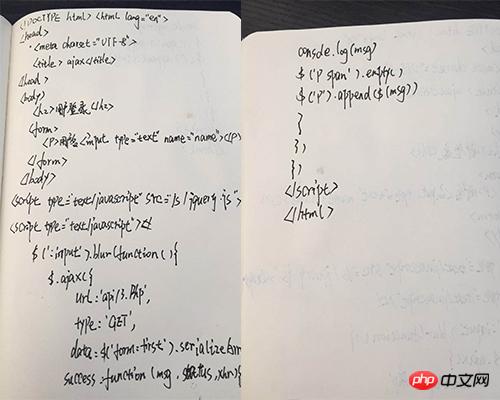 <!DOCTYPE html> <html lang="en">
<head>
<meta charset="UTF-8">
<title> ajax</title>
</head>
<body>
<h2>用户登录</h2>
<form>
<P>用户名<input type="text" name="name"></P>
</form>
</body>
<script type="text/javascript" src="/js/jquery.js">
<script type="text/javascript">
$(':input').blur(function(){
$.ajax({
url:'api/3.php',
type:'GET',
data:$('form:first').serialize
success:function(msg,status,xhr){
console.log(msg)
$('P span').empty()
$('P').append($(msg))
}
})
})
</script>
</html>
php 中文网